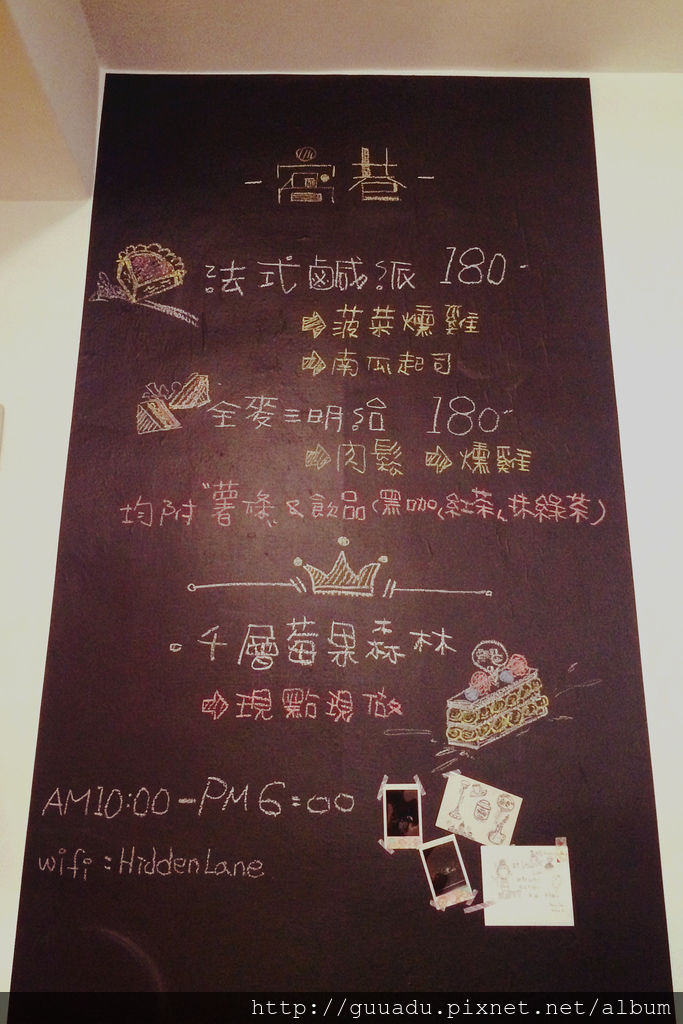 - 窩巷 -
法式鹹派 180-
⇨菠菜燻雞
⇨南瓜起司
全麥三明治 180-
⇨肉鬆 ⇨燻雞
均附"薯條&飲品(黑咖、紅茶、抹綠茶)
•千層莓果森林
⇨現點現做
AM10:00-PM6:00
wifi:HiddenLane
http://guuadu.pixnet.net/album